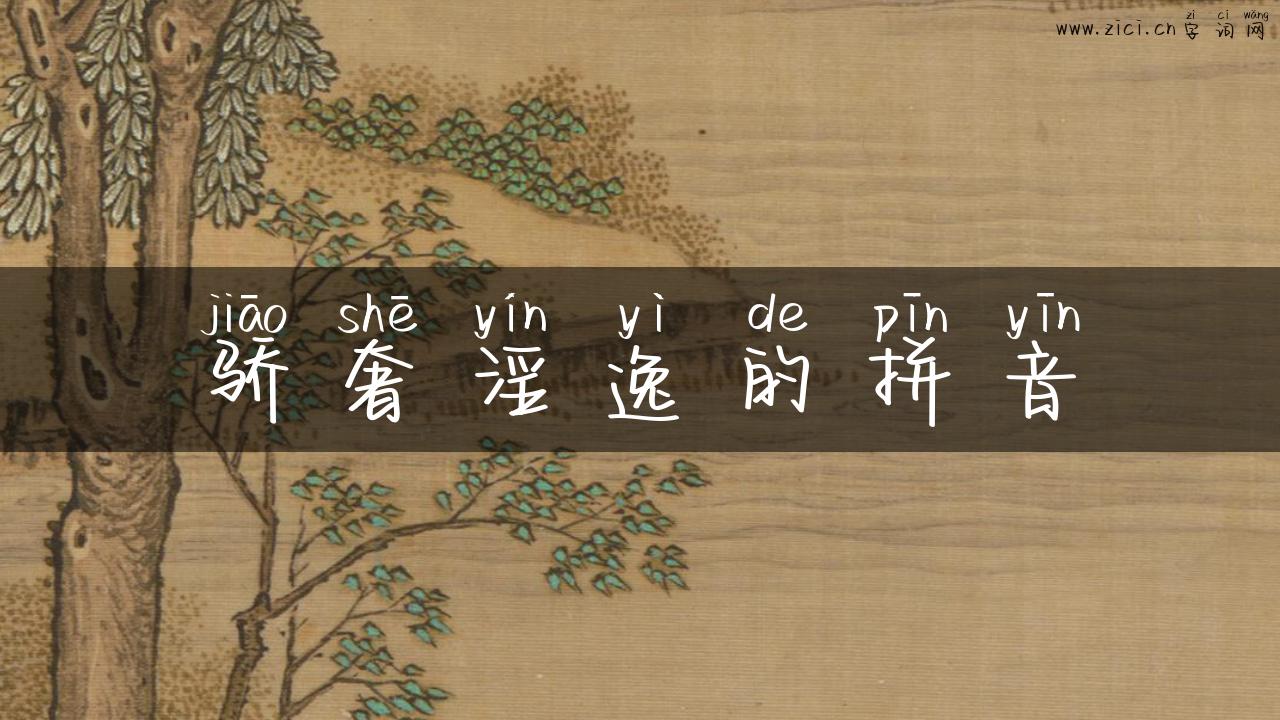 zì cí wǎng
www.zici.cn字词网
jiāo shē yín yì de pīn yīn
骄奢淫逸的拼音